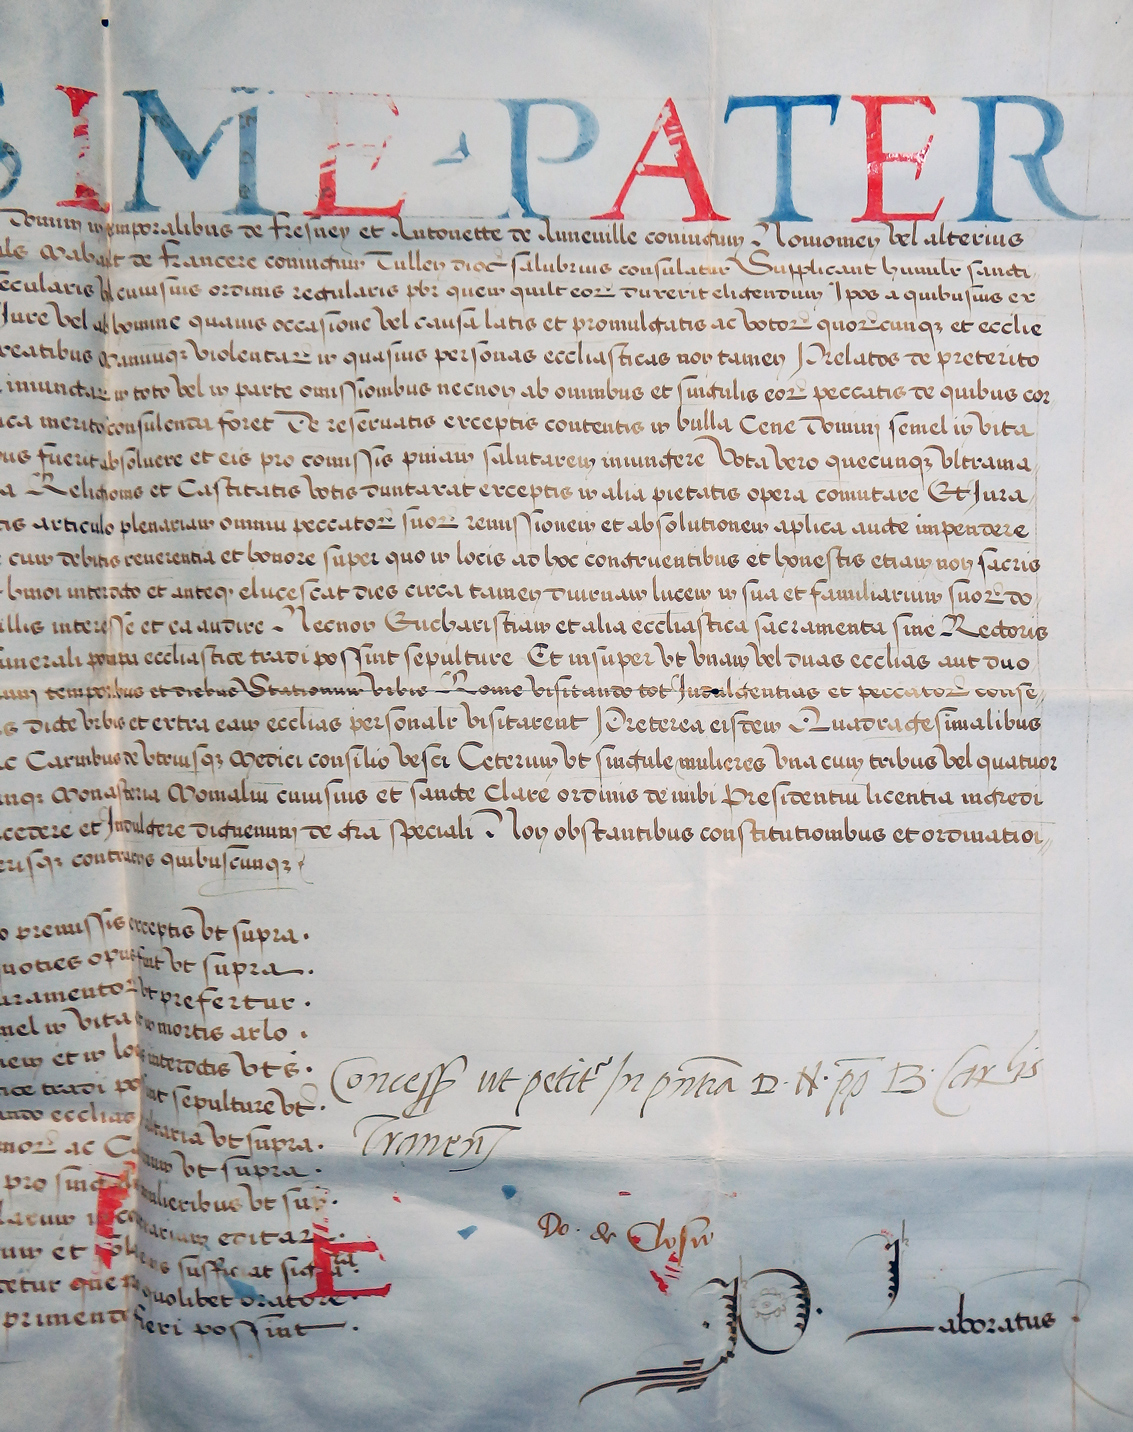 SIME · PATER
Domini in temporalibus de fresney et Antonette de Anneville coniugum Nonomen vel alterius
als Mabalt de francere coniugum Tullen dioc salubrius consulatur Supplicant humilr sancti
ecularis vel cuiusuis ordinis regularis pbr quem quilt eor duxerit eligendum Ipos a quibusuis ex
Jure vel ab homine quauis occasione vel causa latis et promulgatis ac votor quorcunqz et ecclie
reatibus Manuumqz violentar in quasuis personas ecclesiasticas non tamen Prelatos de preterito
iniunctar in toto vel in parte omissionibus necnon ab omnibus et singulis eor peccatis de quibus cor
ica merito consulenda foret De reseruatis exceptis contentis in bulla Cene Domini semel in vita
us fuerit absoluere et eis pro comissis pniam salutarem iniungere Vota vero quecunqz Vltrama
a Religionis et Castitatis votis duntaxat exceptis in alia pietatis opera comutare Et Jura
tis articulo plenariam omniu peccator suor remissionem et absolutionem aplica aucte impendere
cum debitis reuerentia et honore super quo in locis ad hoc congruentibus et honestis etiam non sacris
hmoi interdicto et anteqr elucescat dies circa tamen diurnam lucem in sua et familiarium suor do
illis interesse et ea audire Necnon Eucharistiam et alia ecclesiastica sacramenta sine Rectoris
funerali pompa ecclesiastice tradi possint sepulture Et insuper vt vnam vel duas ecclias aut duo
temporibus et diebus Stationum vrbis Rome visitando tot Indulgentias et peccator conse
s dicte vrbis et extra eam ecclias personalr visitarent Preterea eisdem Quadragesimalibus
ac Carnibus de vtriusqz Medici consilio vesci Ceterum vt singule mulieres vna cum tribus vel quatuor
unqz Monasteria Monialiu cuiusuis et sancte Clare ordinis de inibi Presidentiu licentia ingredi
cedere et Indulgere dignemini de gra speciali Non obstantibus constitutionibus et ordinatioi
risqz contrariis quibuscunqz
o premissis exceptis vt supra.
uoties opus fuit vt supra.
uramentor vt prefertur.
mel in vita et in mortis arlo.
iem et in locis interdictis vt s.
ice tradi possint sepulture vt.
ando ecclias altaria vt supra.
mor ac vt supra.
pro mulieribus vt sup.
editar.
um et sufficiat sig
cetur que quolibet oratore.
primenti fieri possint.
Concess ut petitr In pntia D. N. pp B. Carlis
Tranen
Do. de
E
P.
Laboratus